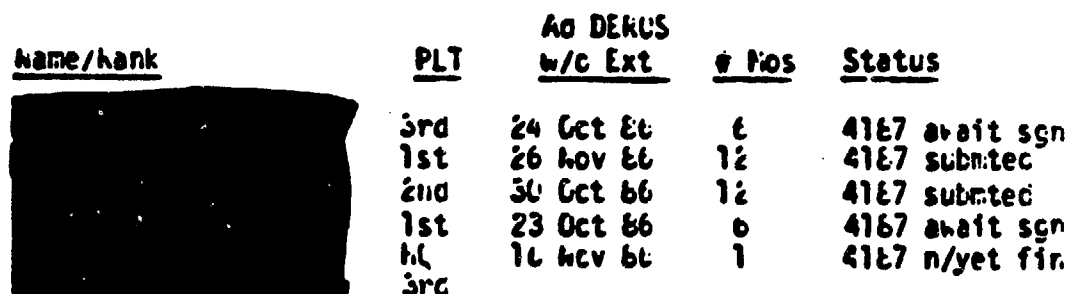 Ad DEROS
Name/Rank PLT w/c Ext # Mos Status
3rd 24 Oct 86 6 4187 await sgn
1st 26 Nov 86 12 4187 submted
2nd 30 Oct 86 12 4187 submted
1st 23 Oct 86 6 4187 await sgn
HQ Nov 86 1 4187 n/yet fin
3rd